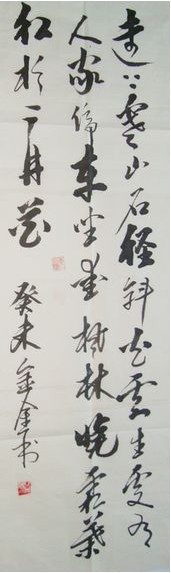 遠上寒山石經斜白雲生處有
人家停車坐愛楓林晚霜葉
紅於二月花
癸未金书